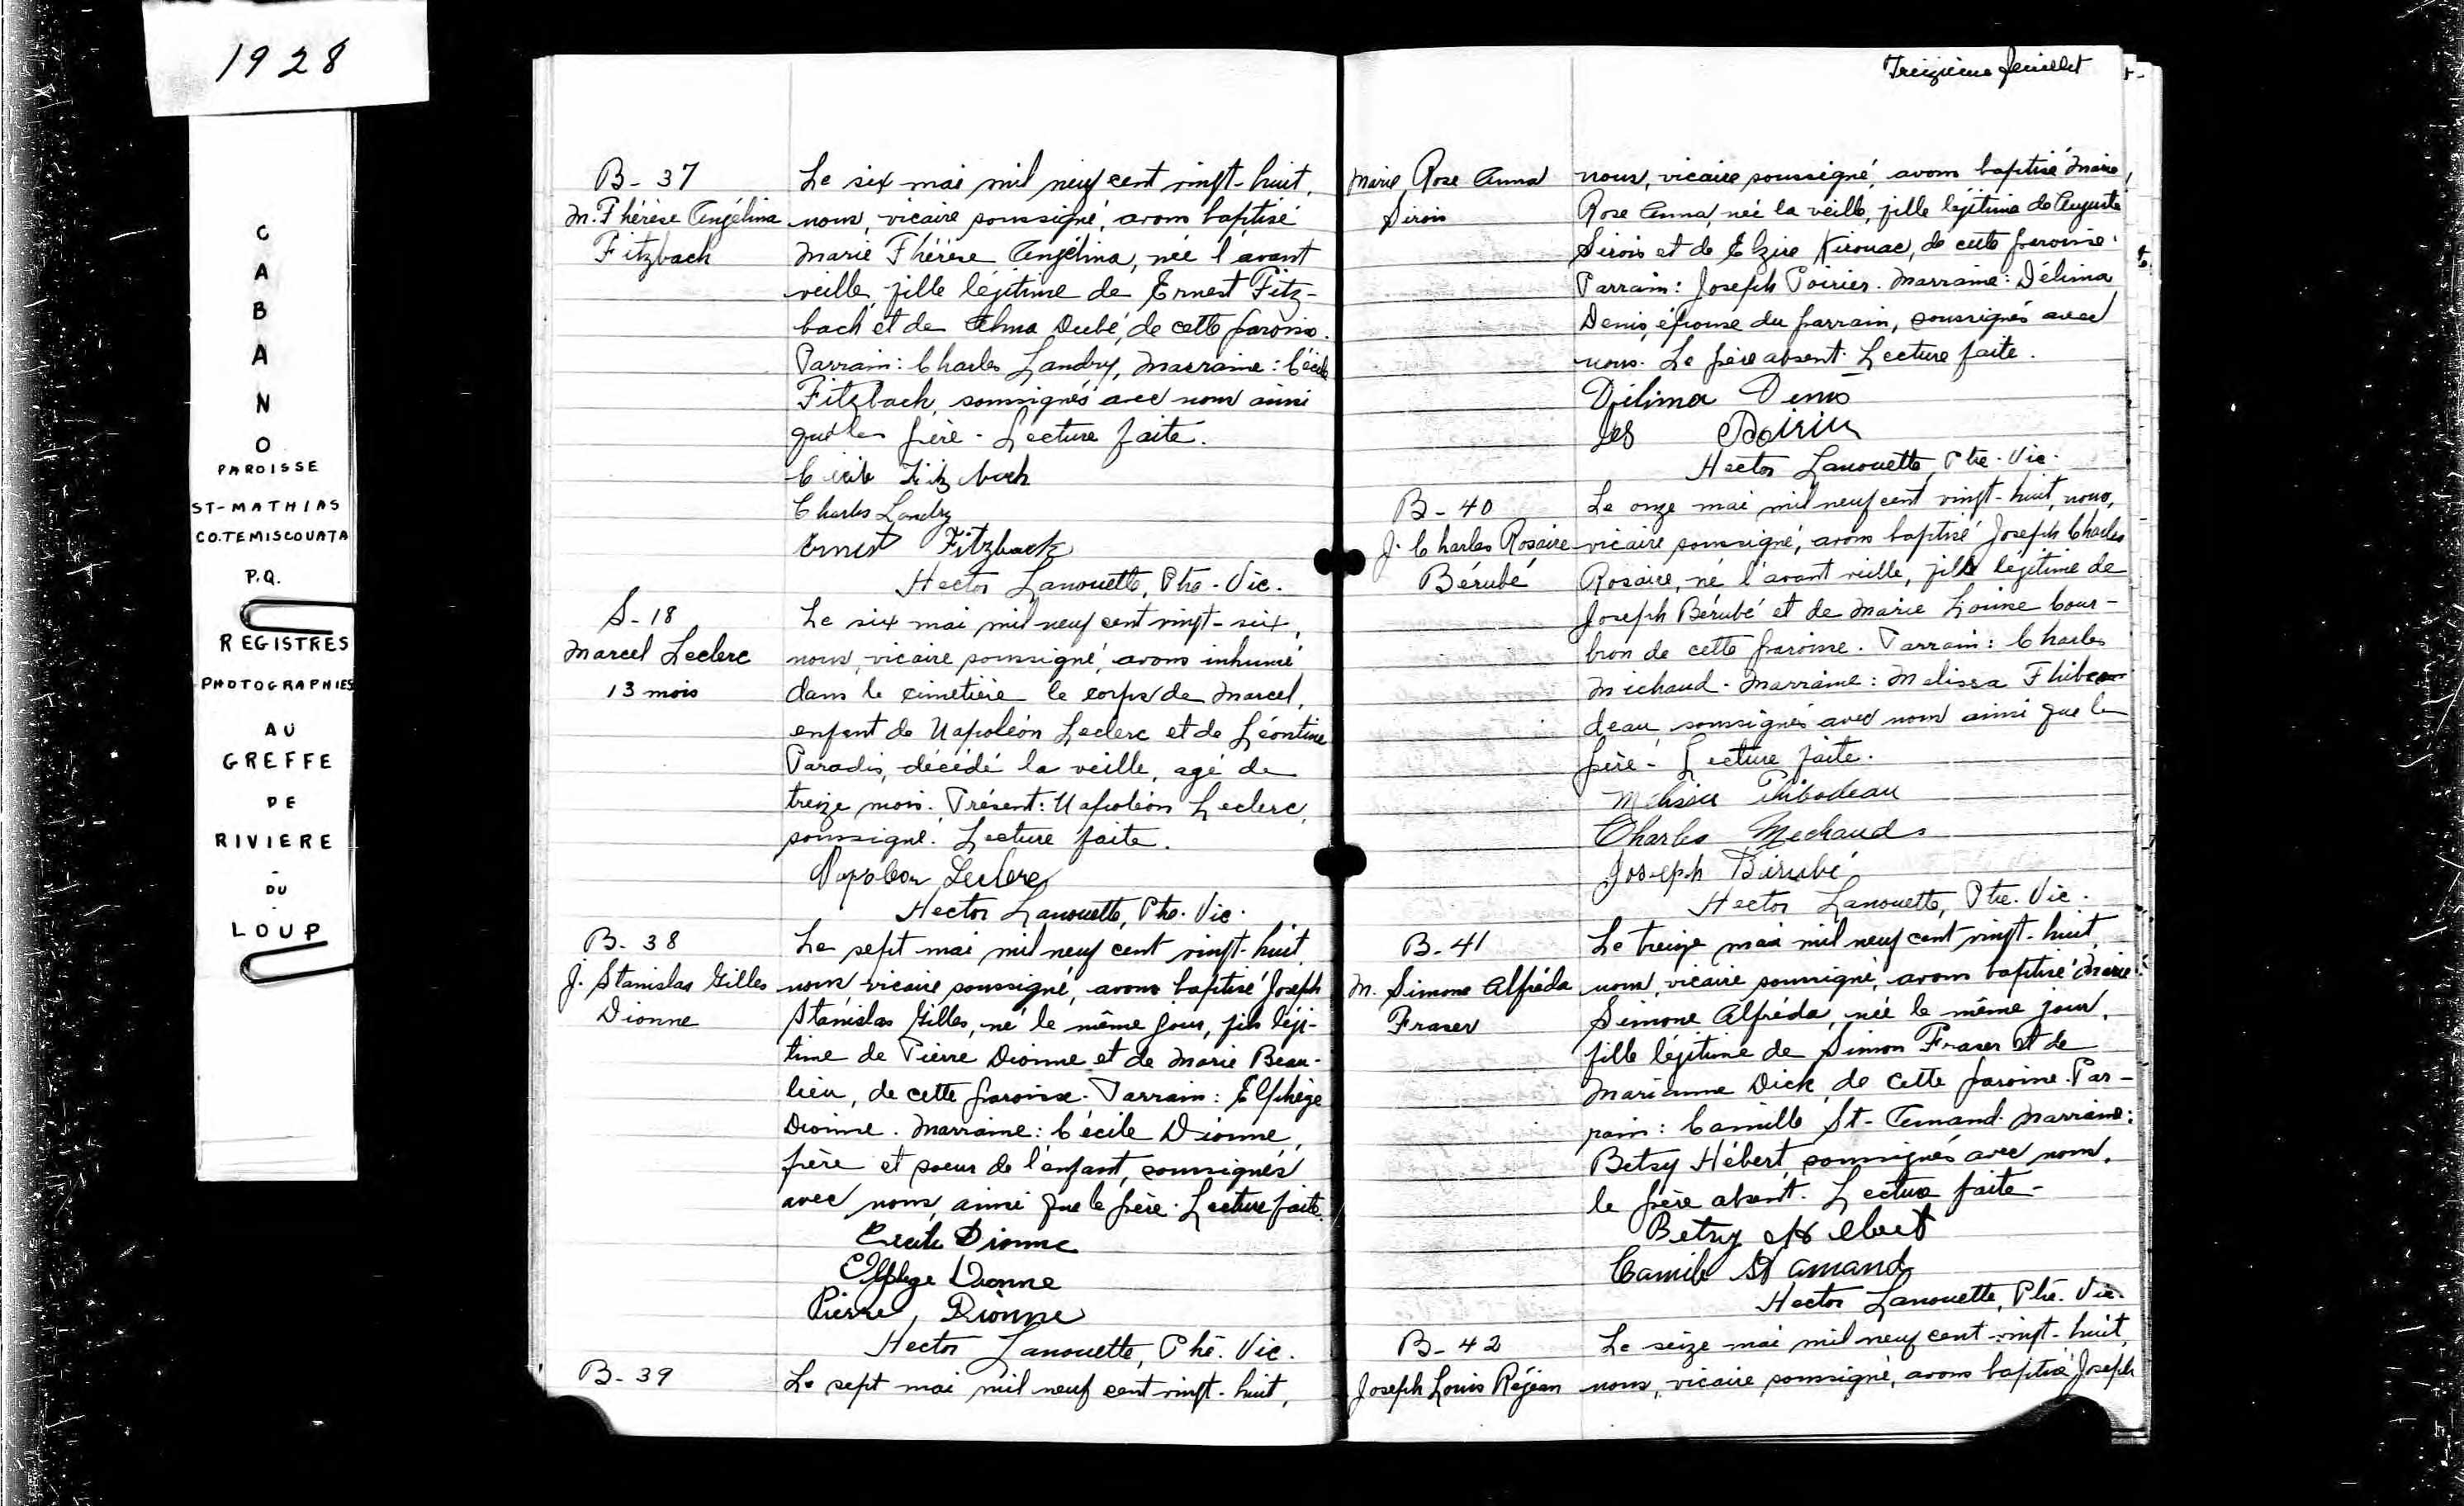 1928
CABANO
PAROISSE
ST-MATHIAS
CO.TEMISCOUATA
P.Q.
REGISTRES
PHOTOGRAPHIES
AU
GREFFE
DE
RIVIERE
-
DU
-
LOUP
B-37
M. Thérèse Angélina
Fitzbach
Le six mai mil neuf cent vingt-huit,
nous, vicaire soussigné, avons baptisé
Marie Thérèse Angélina, née l'avant
veille, fille légitime de Ernest Fitz-
bach et de Alma Dubé, de cette paroisse.
Parrain: Charles Landry, Marraine: Cécile
Fitzbach, soussignés avec nous ainsi
que le père - Lecture faite.
Cécile Fitzbach
Charles Landry
Ernest Fitzback
Hector Lanouette, Ptre-Vic.
S-18
Marcel Leclerc
13 mois
Le six mai mil neuf cent vingt-six,
nous, vicaire soussigné, avons inhumé
dans le cimetière le corps de Marcel,
enfant de Napoléon Leclerc et de Léontine
Paradis, décédé la veille, agé de
treize mois. Présent: Napoléon Leclerc,
soussigné. Lecture faite.
Napoleon Leclerc
Hector Lanouette, Ptre. Vic.
B-38
J. Stanislas Gilles
Dionne
Le sept mai mil neuf cent vingt-huit
nous, vicaire soussigné, avons baptisé Joseph
Stanislas Gilles, né le même jour, fils légi-
time de Pierre Dionne et de Marie Beau-
lieu, de cette paroisse. Parrain: Elphège
Dionne. Marraine: Cécile Dionne,
frère et soeur de l'enfant, soussignés
avec nous, ainsi que le père. Lecture faite.
Cecile Dionne
Elphege Dionne
Pierre, Dionne
Hector Lanouette, Ptre. Vic.
B-39
Le sept mai mil neuf cent vingt-huit,
Treizième feuillet
Marie, Rose Anna
Sirois
nous, vicaire soussigné, avons baptisé Marie,
Rose Anna, née la veille, fille légitime de Auguste
Sirois et de Elzire Kirouac, de cette paroisse.
Parrain: Joseph Poirier. Marraine: Délima
Denis, épouse du parrain, soussignés avec
nous. Le père absent. Lecture faite.
Délima Denis
Jos Poirier
Hector Lanouette, Ptre. Vic.
B-40
J. Charles Rosaire
Bérubé
Le onze mai mil neuf cent vingt-huit, nous,
vicaire soussigné, avons baptisé Joseph Charles
Rosaire, né l'avant veille, fils légitime de
Joseph Bérubé et de Marie Louise Cour-
bron de cette paroisse. Parrain: Charles
Michaud. Marraine: Melissa Thibo
deau, soussignés avec nous ainsi que le
père - Lecture faite.
Melissa Thibodeau
Charles Mechaud
Joseph Bérubé
Hector Lanouette, Ptre. Vic.
B-41
M. Simone Alfréda
Fraser
Le treize mai mil neuf cent vingt-huit
nous, vicaire soussigné, avons baptisé Marie
Simone Alfréda, née le même jour,
fille légitime de Simon Fraser et de
Marianne Dick, de cette paroisse. Par-
rain: Camille St-Amand. Marraine:
Betsy Hébert, soussignés avec nous,
le père absent. Lecture faite -
Betsy Hebert
Camile St amand
Hector Lanouette, Ptre. Vic.
B-42
Joseph Louis Réjean
Le seize mai mil neuf cent vingt-huit,
nous, vicaire soussigné, avons baptisé Joseph